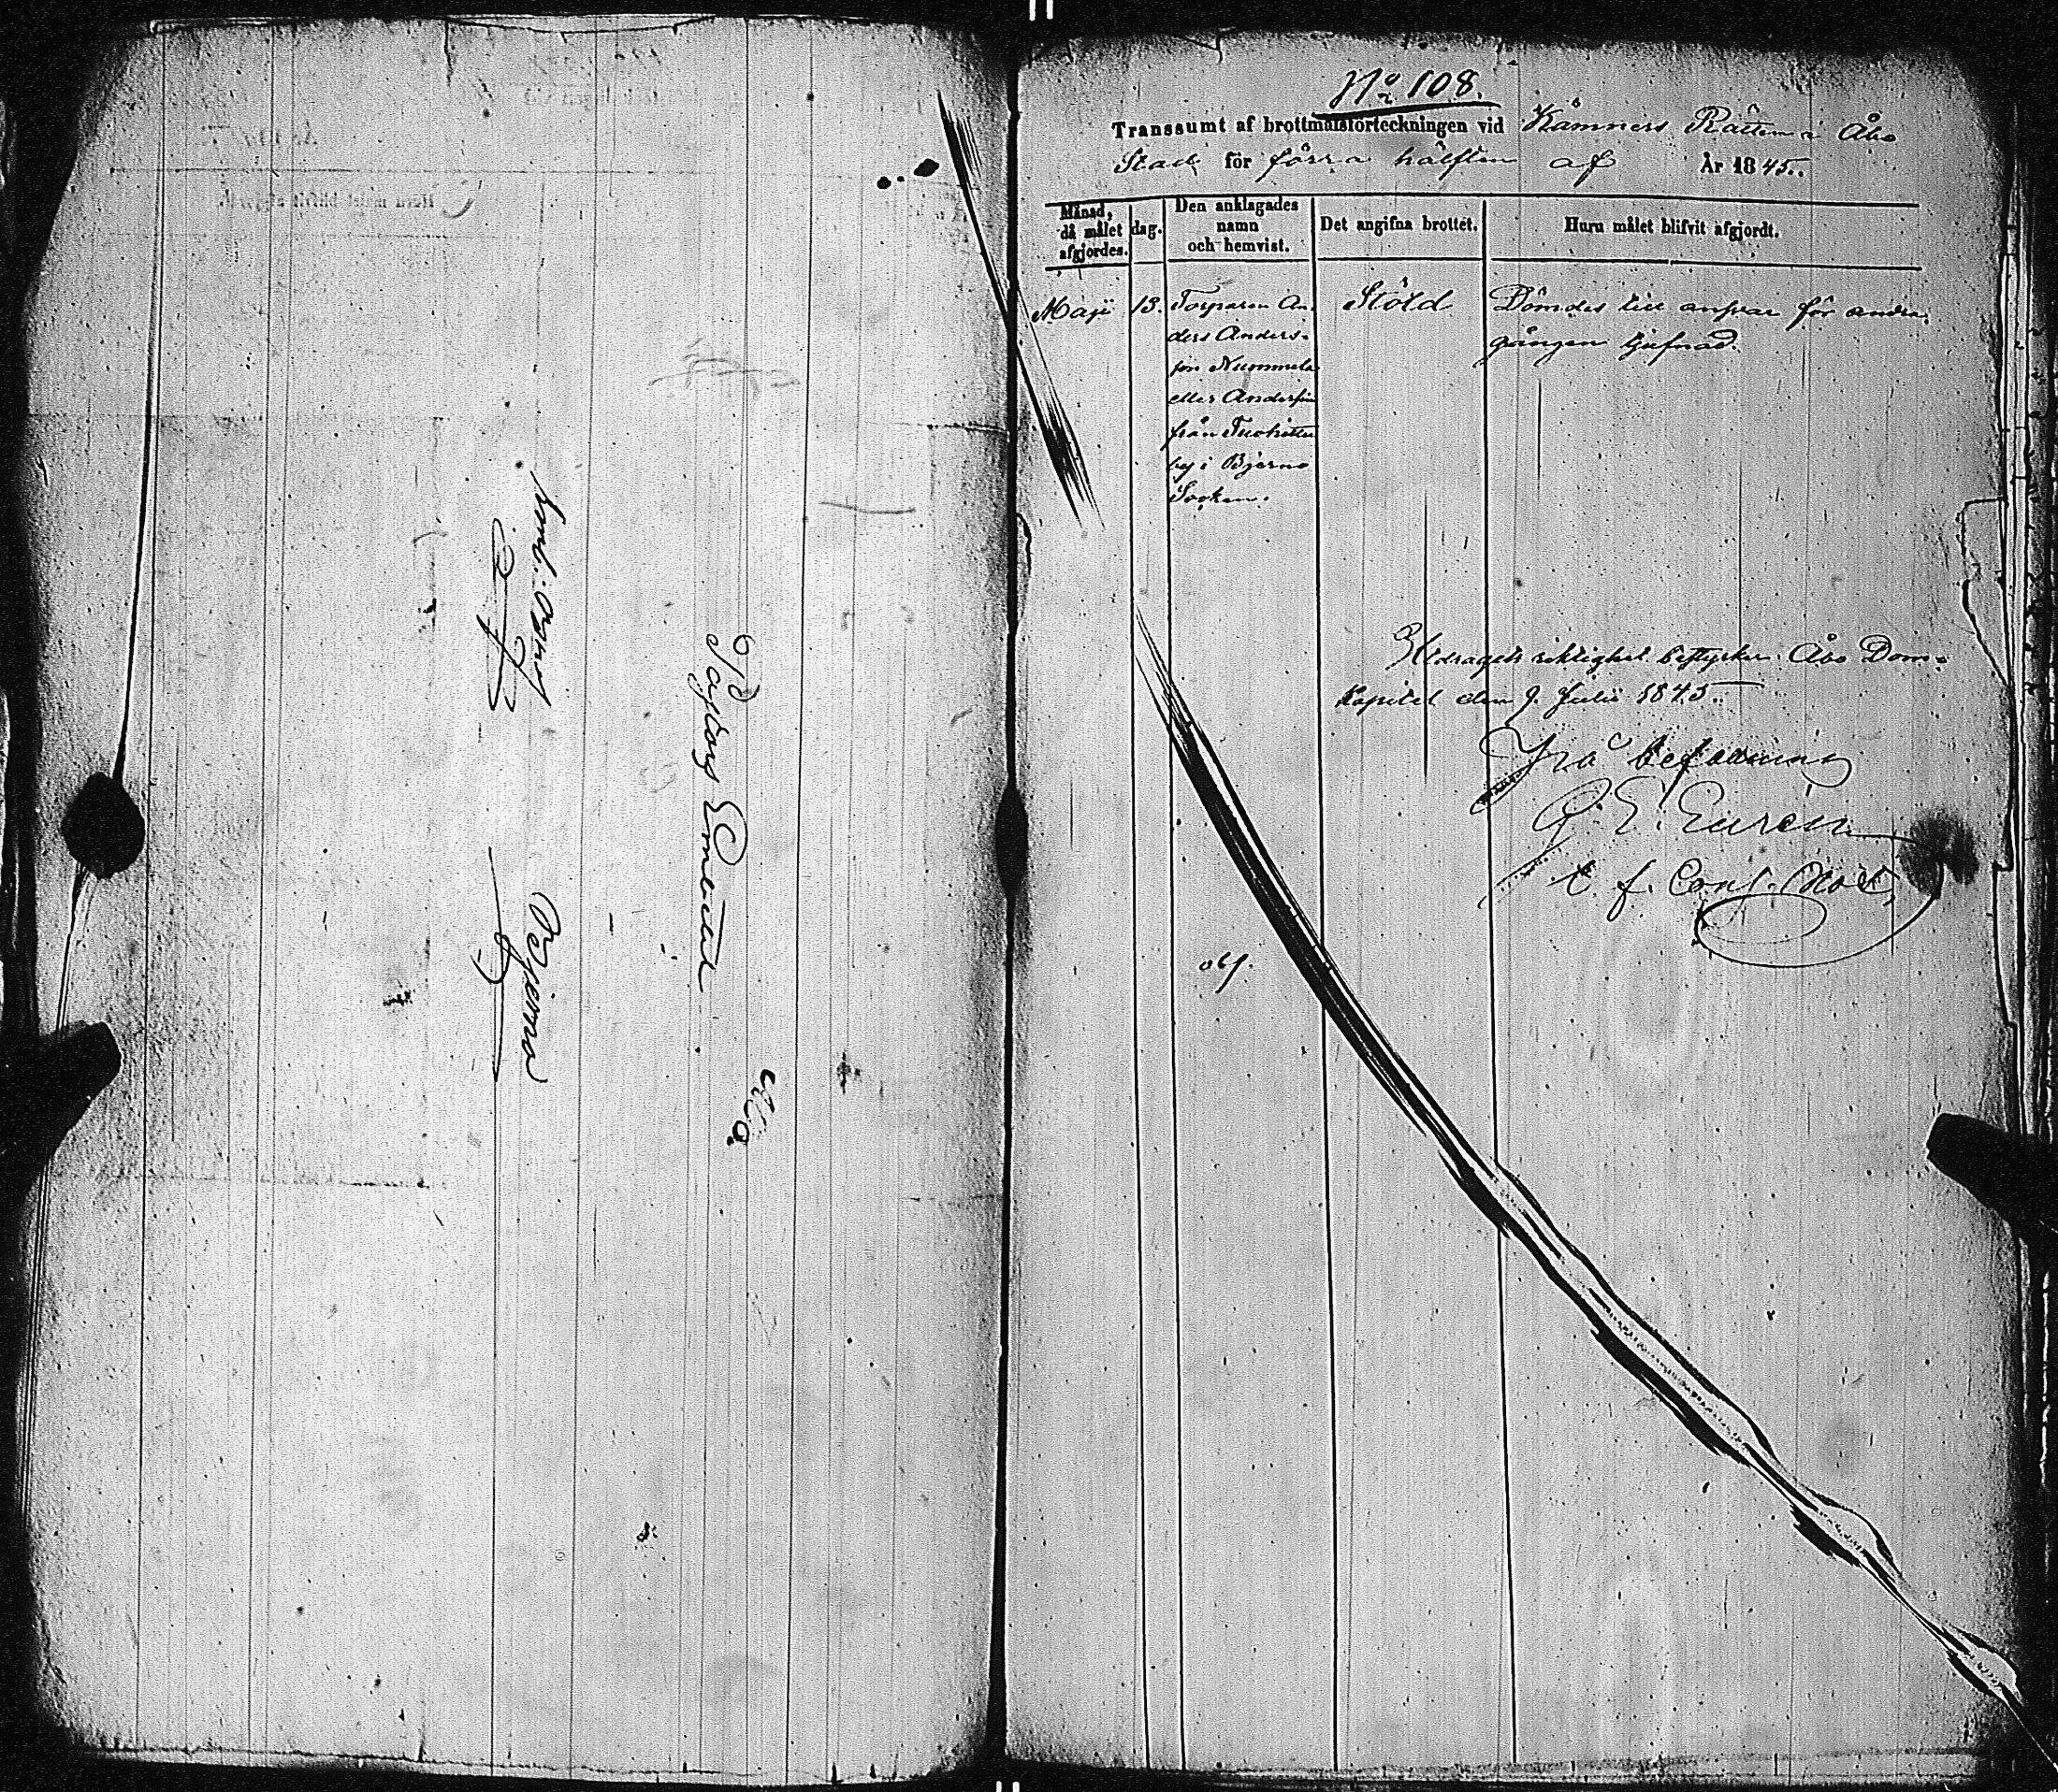 Pastors Embetet
Bjerno
No 108.
Transsumt af brottmålsförteckningen vid Kämners Rätten i Åbo
Stad för förra hälften af År 1845.
Månad, då målet afgjordes.
dag.
Den anklagades namn och hemvist.
Det angifna brottet.
Huru målet blifvit afgjordt.
Maji
13.
Torparen An-
ders Anders-
son Nummela
eller Andersin
från
by i Bjerno
Socken.
Stöld
Dömdes till ansvar för andra
gången tjufnad.
Utdragets riktighet bestyrker. Åbo Dom-
kapitel den 9. Julii 1845.
På befallning
G. E. Eurén
t. f. Cons. Not.